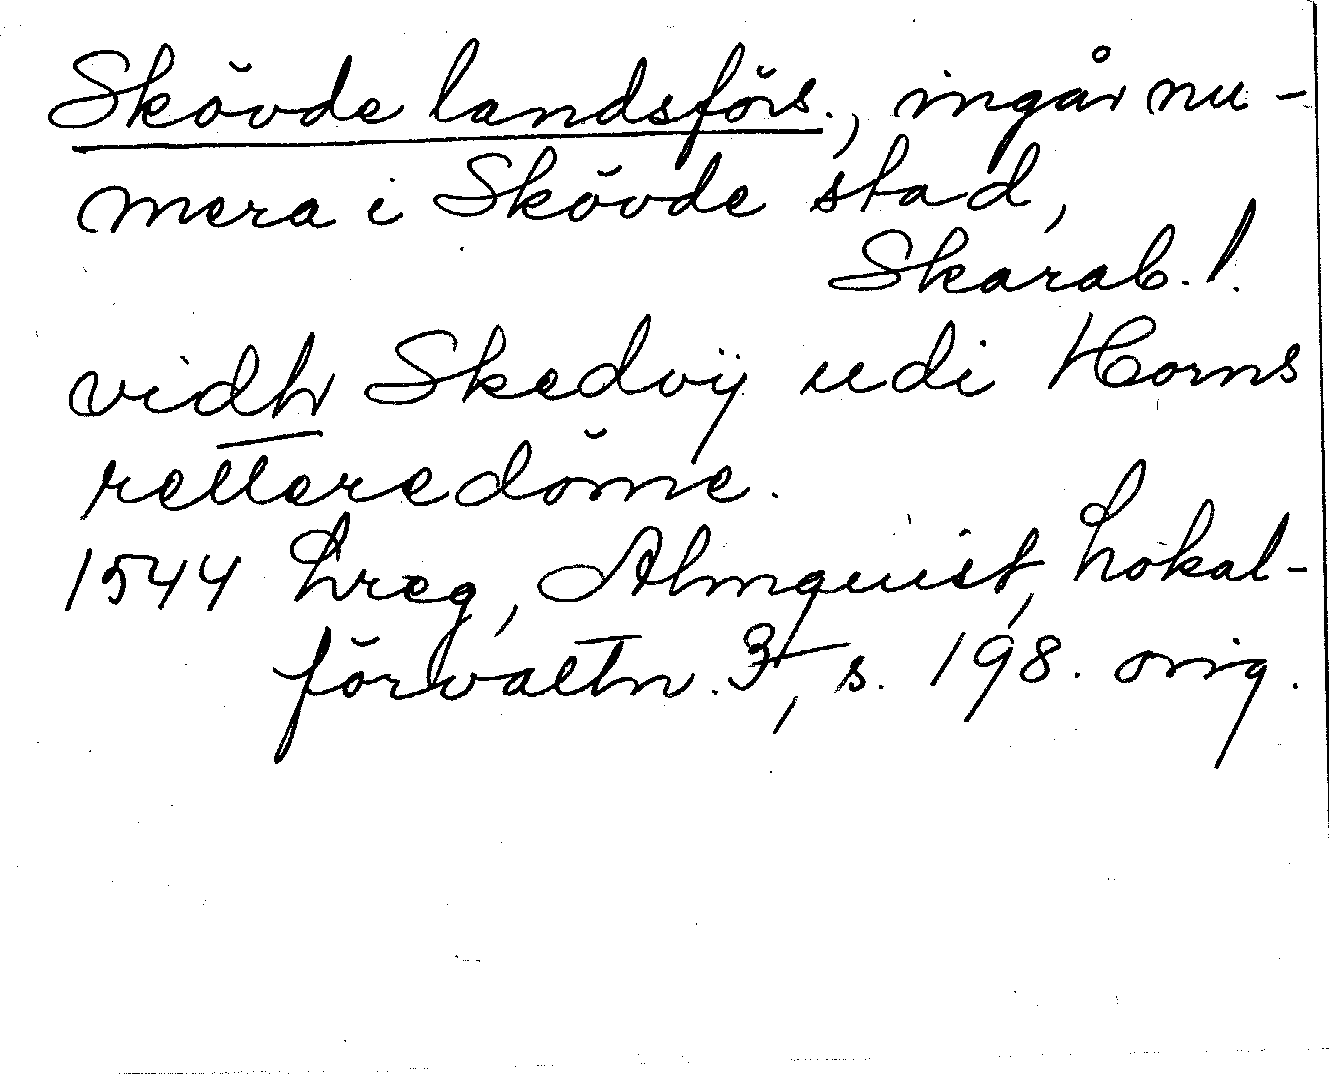 Skövde landsförs., ingår nu-
mera i Skövde stad,
Skarab. l.
vidh Skedvÿ udi Horns
retteredöme.
1544 Lreg, Almquist, Lokal-
förvaltn. 3, s. 198. orig.